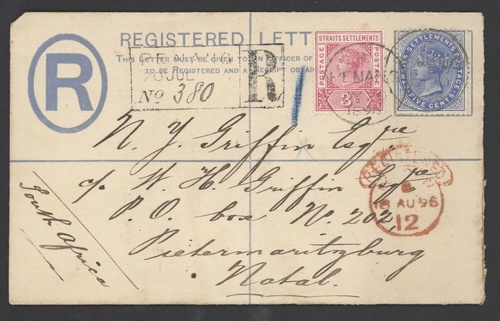 REGISTERED LETTER
THIS LETTER MUST BE GIVEN TO AN OFFICER OF
TO BE REGISTERED AND A RECEIPT OBTAI
R
PENANG
JUL
No 380
R
STRAITS SETTLEMENTS
POSTAGE
POSTAGE
3
PENANG
SETTLEMENTS
FIVE CENTS
N. Y. Griffin Esqre
c/o W. H. Griffin Esqre
P. O. box No. 202,
Pietermaritzburg
Natal.
South Africa
REGISTERED
18 AU 96
12